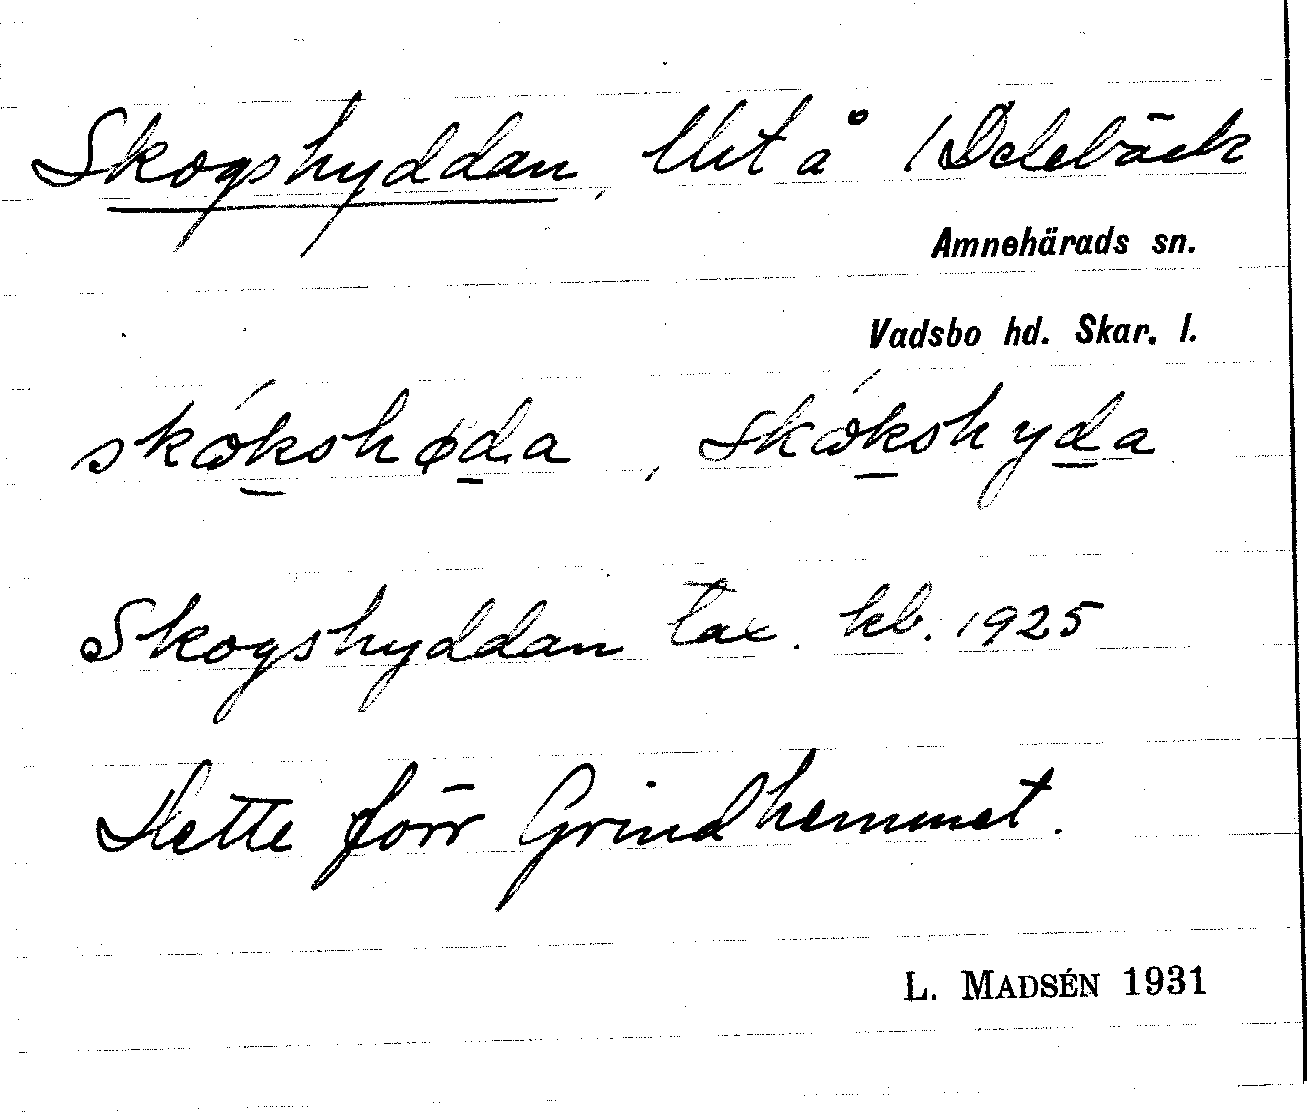 Skogshyddan, lht å 1 Delebäck
Amnehärads sn.
Vadsbo hd. Skar. l.
skókshøda, skókshyda
Skogshyddan tax. kb. 1925
Hette förr Grindhemmet.
L. MADSÉN 1931